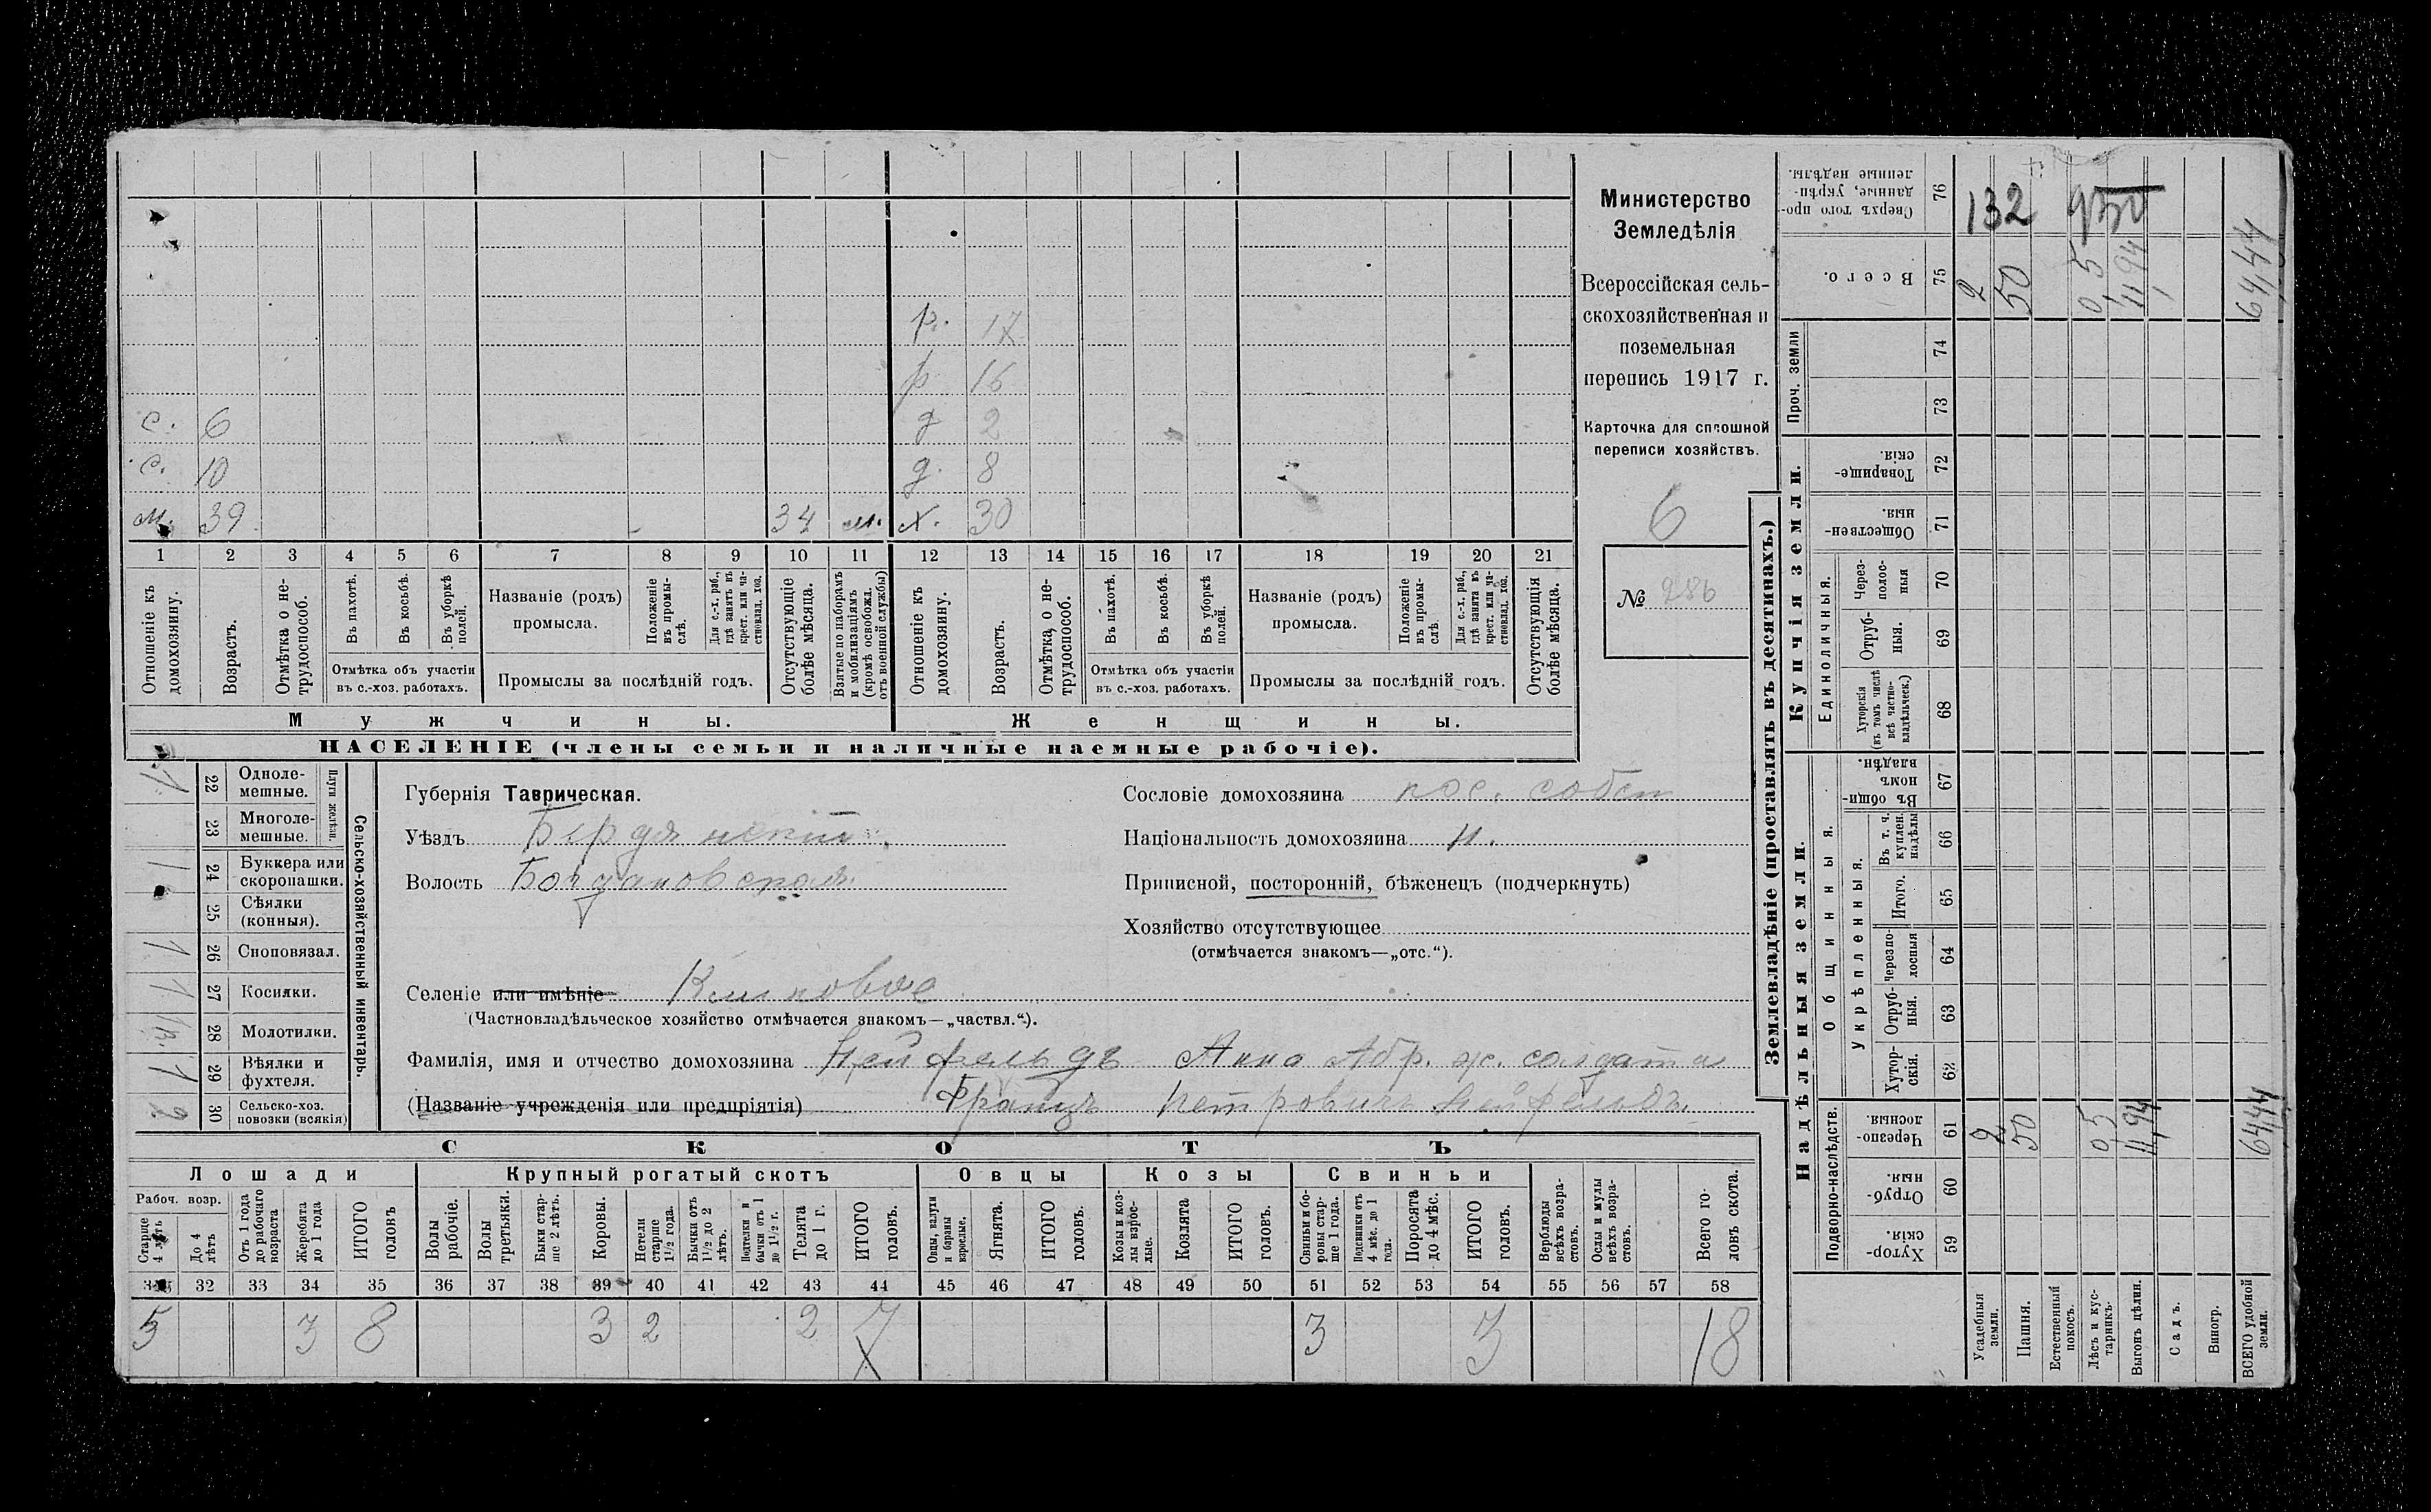 Министерство
Земледѣлія
Всероссійская сель-
скохозяйственная и
поземельная
перепись 1917 г.
Карточка для сплошной
переписи хозяйствъ.
6
№ 286
р. 17
р 16
с. 6 д 2
с. 10 д. 8
м. 39 34 м. х. 30
1 2 3 4 5 6 7 8 9 10 11 12 13 14 15 16 17 18 19 20 21
Отношеніе къ домохозяину.
Возрастъ.
Отмѣтка о не-трудоспособ.
Въ пахотѣ.
Въ косьбѣ.
Въ уборкѣ полей.
Отмѣтка объ участіи
въ с.-хоз. работахъ.
Названіе (родъ)
промысла.
Положеніе въ промы-слѣ.
Для с.-х. раб., гдѣ занятъ въ крест. или ча-стновлад. хоз.
Промыслы за послѣдній годъ.
Отсутствующіе болѣе мѣсяца.
Взятые по наборамъ и мобилизаціямъ (кромѣ освобожд. отъ военной службы)
Отношеніе къ домохозяину.
Возрастъ.
Отмѣтка о не-трудоспособ.
Въ пахотѣ.
Въ косьбѣ.
Въ уборкѣ полей.
Отмѣтка объ участіи
въ с.-хоз. работахъ.
Названіе (родъ)
промысла.
Положеніе въ промы-слѣ.
Для с.-х. раб., гдѣ занята въ крест. или ча-стновлад. хоз.
Промыслы за послѣдній годъ.
Отсутствующія болѣе мѣсяца.
Мужчины. Женщины.
НАСЕЛЕНІЕ (члены семьи и наличные наемные рабочіе).
Сельско-хозяйственный инвентарь.
Плуги желѣзн.
1 22 Одноле-мешные.
23 Многоле-мешные.
1 24 Буккера или скоропашки.
25 Сѣялки (конныя).
1 26 Сноповязал.
1 27 Косилки.
28 Молотилки.
1 29 Вѣялки и фухтеля.
2 30 Сельско-хоз. повозки (всякія)
Губернія Таврическая.
Уѣздъ Бердянскій.
Волость Богдановская.
Сословіе домохозяина пос. собст
Національность домохозяина н.
Приписной, посторонній, бѣженецъ (подчеркнуть)
Хозяйство отсутствующее
(отмѣчается знакомъ—„отс.“).
Селеніе или имѣніе
(Частновладѣльческое хозяйство отмѣчается знакомъ—„частвл.“).
Фамилія, имя и отчество домохозяина Нейфельдъ Анна Абр. ж. солдата
(Названіе учрежденія или предпріятія) Францъ Петровичъ Нейфельдъ.
СКОТЪ
Лошади Крупный рогатый скотъ Овцы Козы Свиньи
Рабоч. возр.
Старше 4 лѣтъ
До 4 лѣтъ
Отъ 1 года до рабочаго возраста
Жеребята до 1 года
ИТОГО головъ
Волы рабочіе.
Волы третьяки.
Быки стар-ше 2 лѣтъ.
Коровы.
Нетели старше 1½ года.
Бычки отъ 1½ до 2 лѣтъ.
Нетелки и бычки отъ 1 до 1½ г.
Телята до 1 г.
ИТОГО головъ.
Овцы, валухи и бараны взрослые.
Ягнята.
ИТОГО головъ.
Козы и коз-лы взрос-лые.
Козлята
ИТОГО головъ.
Свиньи и бо-ровы стар-ше 1 года.
Подсвинки отъ 4 мѣс. до 1 года.
Поросята до 4 мѣс.
ИТОГО головъ.
Верблюды всѣхъ возра-стовъ.
Ослы и мулы всѣхъ возра-стовъ.
Всего го-ловъ скота.
31 32 33 34 35 36 37 38 39 40 41 42 43 44 45 46 47 48 49 50 51 52 53 54 55 56 57 58
5 3 8 3 2 2 7 3 3 18
Землевладѣніе (проставлять въ десятинахъ.)
Надѣльныя земли. Купчія земли. Проч. земли
Подворно-наслѣдств.
Общинныя.
Укрѣпленныя.
Единоличныя.
Хутор-скія. 59
Отруб-ныя. 60
Черезпо-лосныя 61
Хутор-скія. 62
Отруб-ныя. 63
Черезпо-лосныя 64
Итого. 65
Въ т. ч. куплен. надѣлы 66
Въ общин-номъ владѣн. 67
Хуторскія (въ томъ числѣ всѣ частно-владѣльческ.) 68
Отруб-ныя. 69
Через-полос-ныя 70
Обществен-ныя. 71
Товарище-скія. 72
73
74
Всего. 75
Сверхъ того про-данные, укрѣп-ленные надѣлы. 76
Усадебныя земли. 2 2
Пашня. 50 50
Естественный покосъ.
Лѣсъ и кус-тарникъ. 0,5 0,5
Выгонъ цѣлин. 11,94 11,94
Садъ.
Виногр.
ВСЕГО удобной земли. 64,44 64,44
132